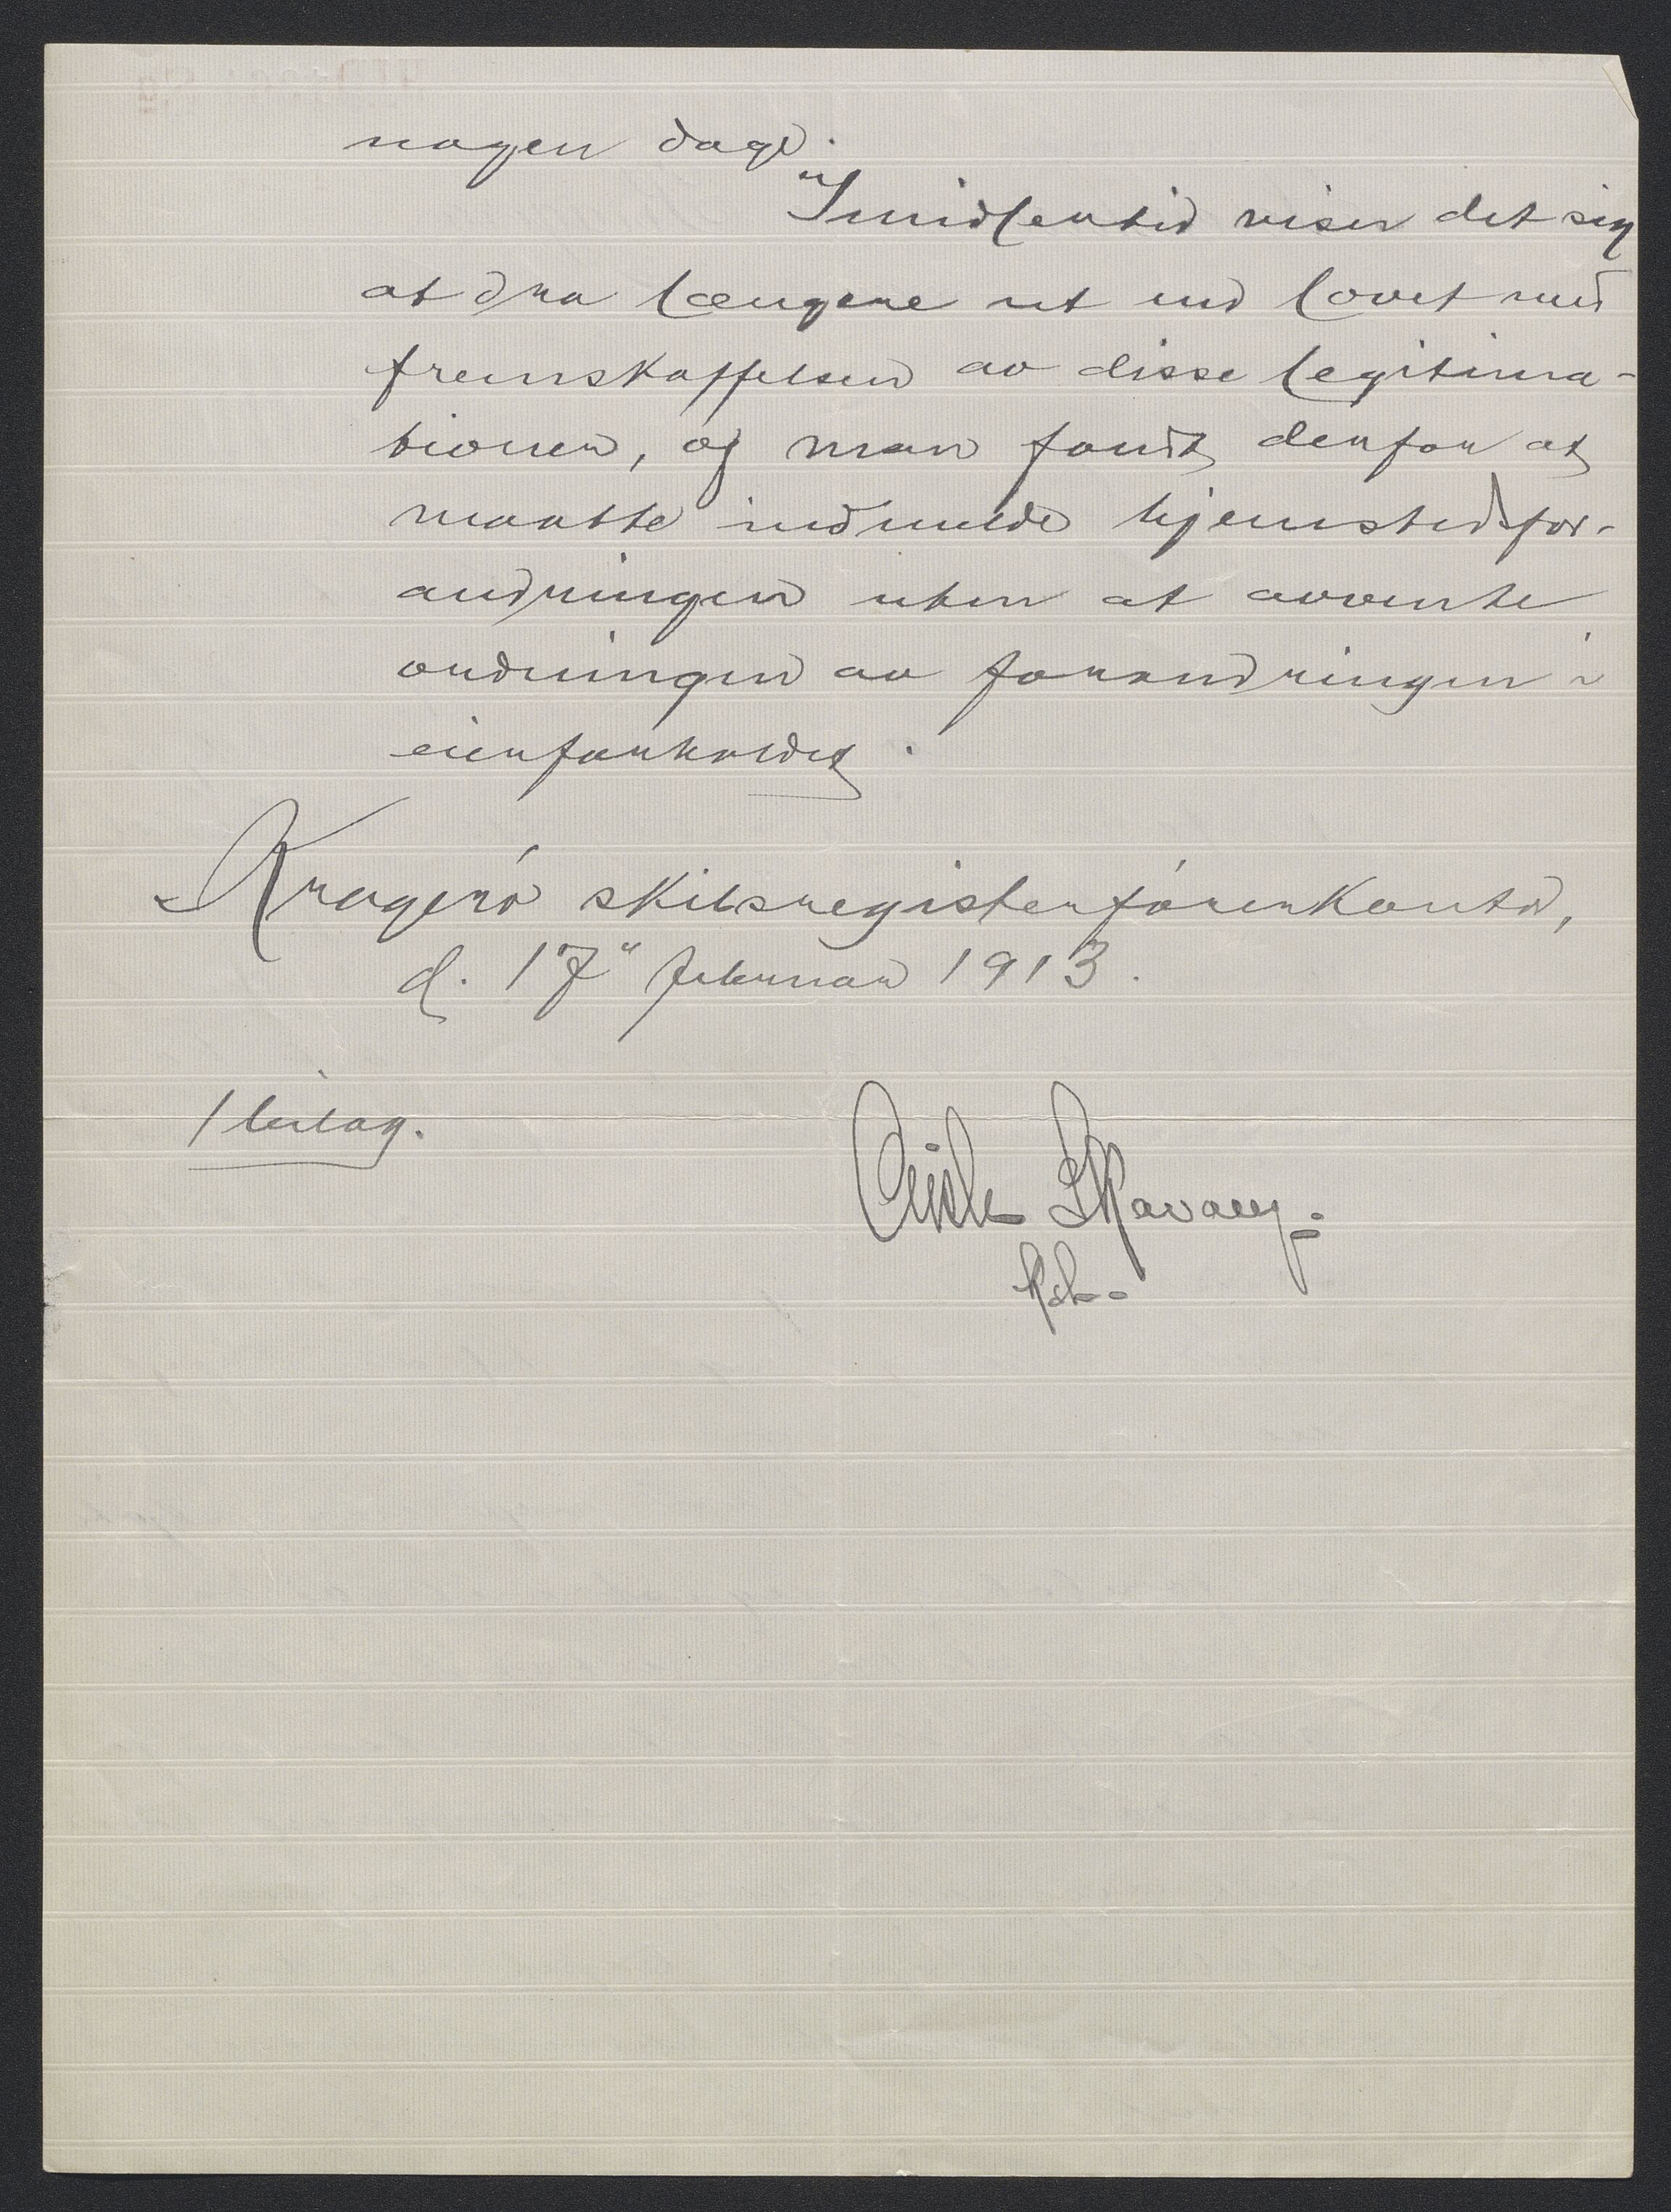 nogen dage.
Imidlertid viser det sig
at dra længere ut end lovet med
fremskaffelsen av disse legitima-
tioner, og man fandt derfor at
maatte indmelde hjemstedsfor-
andringen uten at avvente
ordningen av forandringen i
eierforholdet.
Kragerø skibsregisterførerkontor,
d. 17" februar 1913.
1 bilag.